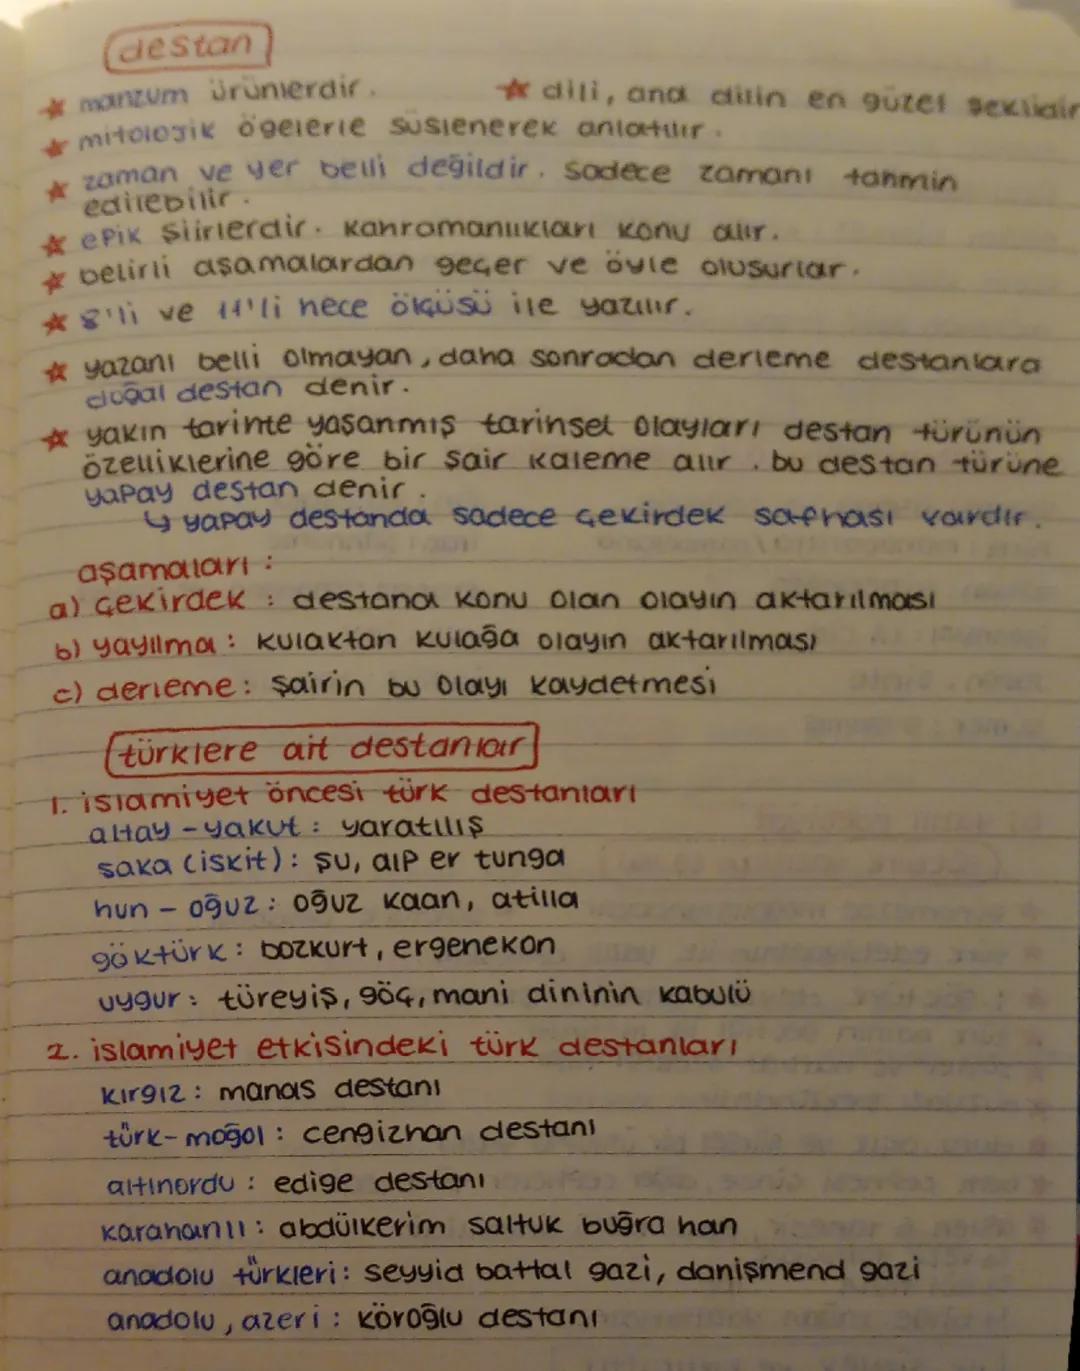 destan
★ manzum ürünlerdir. ★ dili, ana dilin en güzel şeklidir
★ mitolojik ögelerle süslenerek anlatılır.
★ zaman ve yer belli değildir. Sadece zamanı tahmin
edilebilir.
★ epik şiirlerdir. Kahramanlıkları konu alır.
★ belirli aşamalardan geçer ve öyle oluşurlar.
★ 8'li ve 11'li hece ölçüsü ile yazılır.
★ yazanı belli olmayan, daha sonradan derleme destanlara
doğal destan denir.
★ yakın tarihte yaşanmış tarihsel olayları destan türünün
özelliklerine göre bir şair kaleme alır. bu destan türüne
yapay destan denir.
↳ yapay destanda sadece çekirdek safhası vardır.
aşamaları :
a) çekirdek : destana konu olan olayın aktarılması
b) yayılma : kulaktan kulağa olayın aktarılması
c) derleme : şairin bu olayı kaydetmesi
türklere ait destanlar
1. islamiyet öncesi türk destanları
altay - yakut : yaratılış
saka (iskit) : şu, alp er tunga
hun - oğuz : oğuz kaan, atilla
göktürk : bozkurt, ergenekon
uygur : türeyiş, göç, mani dininin kabulü
2. islamiyet etkisindeki türk destanları
kırgız : manas destanı
türk-moğol : cengizhan destanı
altınordu : edige destanı
karahanlı : abdülkerim saltuk buğra han
anadolu türkleri : seyyid battal gazi, danişmend gazi
anadolu, azeri : köroğlu destanı